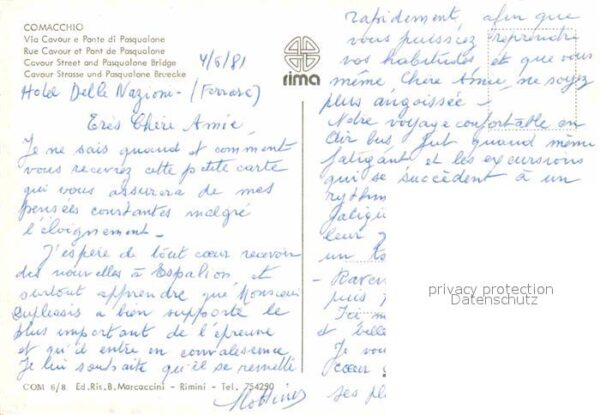 COMACCHIO
Via Cavour e Ponte di Pasqualone
Rue Cavour et Pont de Pasqualone
Cavour Street and Pasqualone Bridge
Cavour Strasse und Pasqualone Bruecke
4/6/81
rima
Hotel Delle Nazioni - (Ferrare)
Très Chère Amie,
Je ne sais quand et comment
vous recevrez cette petite carte
qui vous assurera de mes
pensées constantes malgré
l'éloignement -
J'espère de tout cœur recevoir
des nouvelles à Espalion et
surtout apprendre que Monsieur
Duplessis a bien supporté le
plus important de l'épreuve
et qu'il entre en convalescence
Je lui souhaite qu'il se remette
COM 6/8 Ed. Ris. B. Marcaccini - Rimini - Tel. 754290
rapidement, afin que
vous puissiez reprendre
vos habitudes et que vous
même Chère Amie, ne soyez
plus angoissée -
Notre voyage confortable en
Air bus, fut quand même
fatigant et les excursions
qui se succèdent à un
rythm
fatigu
leur
un
- Raven
puis
Ici
et belle
Je vou
cœur
ses pl
privacy protection
Datenschutz